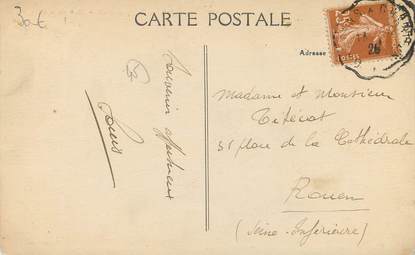 30€
CARTE POSTALE
Adresse
Souvenir affectueux
Louis
Madame et Monsieur
35 place de la Cathédrale
Rouen
(Seine-Inférieure)
25
26